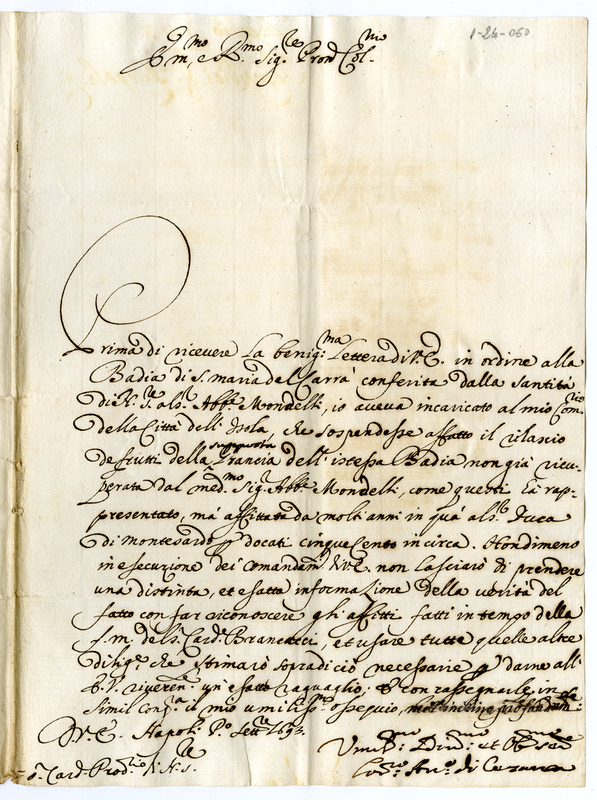 1-24-060
Em.mo e R.mo Sig.re Prõn Col.mo
Prima di ricevere la benig.ma Lettera di V.E. in ordine alla
Badia di S. Maria del Carrà conferita dalla Santità
di N. S.re al S.r Abb.e Mondelli, io aveva incaricato al mio Com.rio
della Città dell' Isola, che sospendesse affatto il rilascio
supposta
de frutti della Grancia dell' istessa Badia non già ricu-
perata dal med.mo Sig.r Abb.e Mondelli, come questi hà rap-
presentato, mà affittata da molti anni in quà al S.r Duca
di Montesardo p docati cinquecento in circa. Nondimeno
in esecuzione dei comandam.ti di V.E. non lasciarò di prendere
una distinta, et esatta informazione della verità del
fatto con far riconoscere gli affitti fatti in tempo della
f. m. del S.r Card. Brancacci, et usare tutte quelle altre
dilig.e che stimarò sopradiciò necessarie p darne all'
E.V. riveren.te un' esatto raguaglio; E con rassegnarle in
simil cong.a il mio umiliss.mo ossequio,
D. V. E. Napoli P.o Sett.re 1693.
Umil.mo Div.mo et Obl.mo Ser.re
S.r Card. Prod.rio di N. S.re